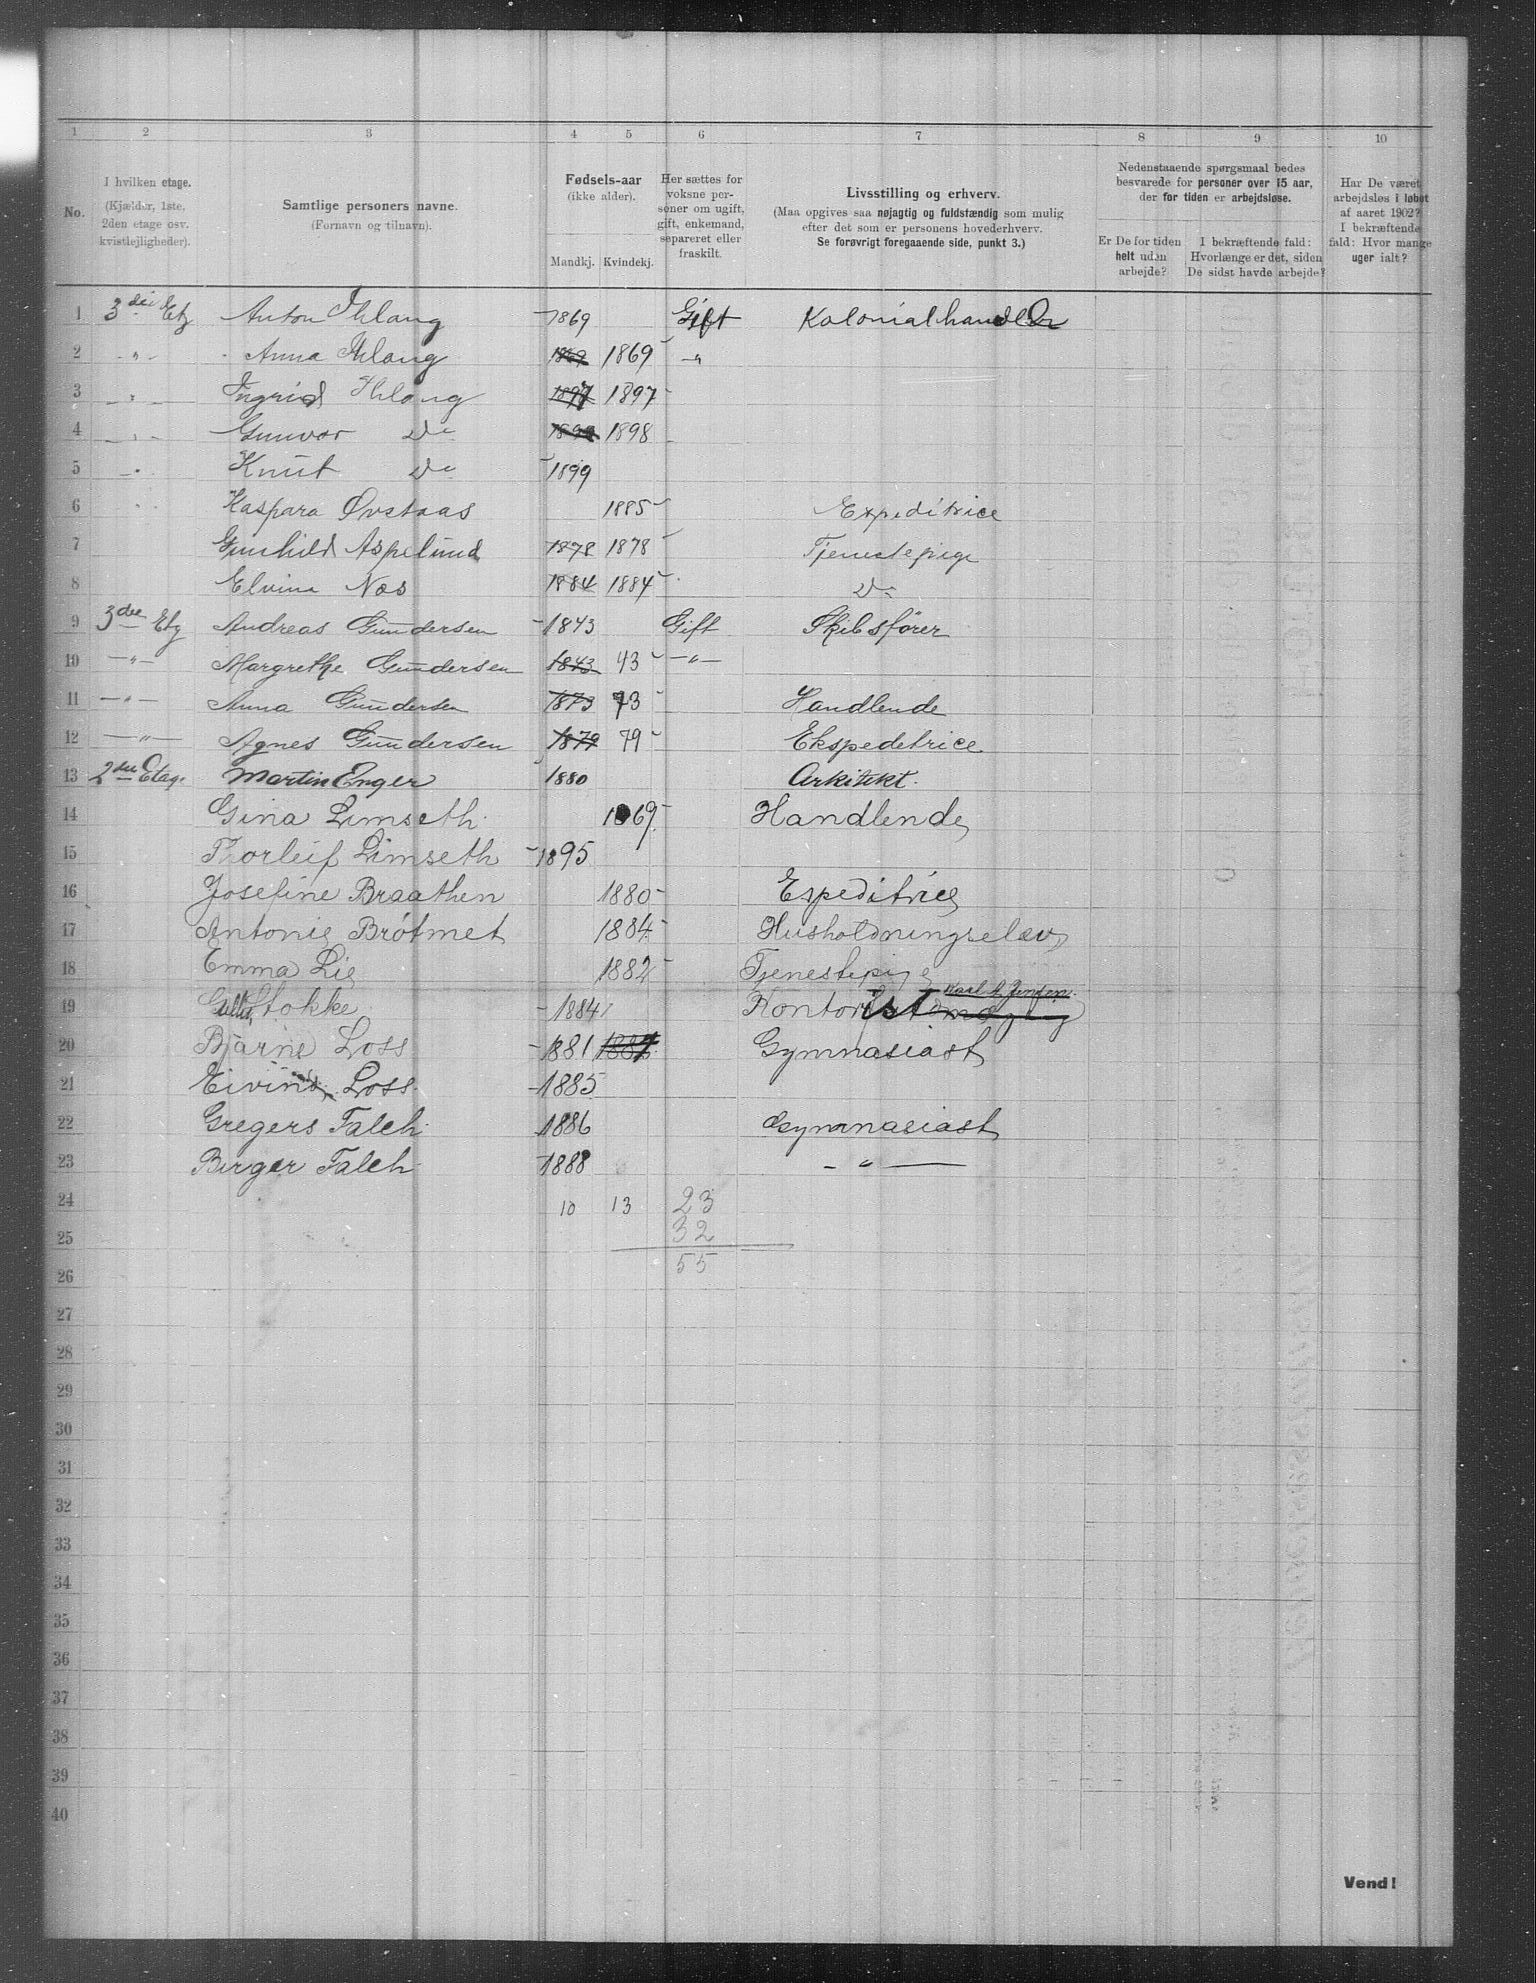 1 2 3 4 5 6 7 8 9 10
No.
I hvilken etage.
(Kjælder, 1ste,
2den etage osv.
kvistlejligheder).
Samtlige personers navne.
(Fornavn og tilnavn).
Fødsels-aar
(ikke alder).
Mandkj. Kvindekj.
Her sættes for
voksne per-
soner om ugift,
gift, enkemand,
separeret eller
fraskilt.
Livsstilling og erhverv.
(Maa opgives saa nøjagtig og fuldstændig som mulig
efter det som er personens hovederhverv.
Se forøvrigt foregaaende side, punkt 3.)
Nedenstaaende spørgsmaal bedes
besvarede for personer over 15 aar,
der for tiden er arbejdsløse.
Er De for tiden
helt uden
arbejde?
I bekræftende fald:
Hvorlænge er det, siden
De sidst havde arbejde?
Har De været
arbejdsløs i løbet
af aaret 1902?
I bekræftende
fald: Hvor mange
uger ialt?
1 3die Etg Anton Ihlang 1869 Gift Kolonialhandler
2 -"- Anna Ihlang 1869 1869 -"
3 -"- Ingrid Ihlang 1897 1897
4 -"- Gunvor Do 1898
5 -"- Knut Do 1899
6 " Kaspara Øvstaas 1885 Expeditrice
7 Gunhild Aspelund 1878 1878 Tjenestepige
8 Elvina Næs 1884 1884 Do
9 3die Etg Andreas Gundersen 1843 Gift Skibsfører
10 -"- Margrethe Gundersen 1843 43 -"-
11 -"- Anna Gundersen 1873 73 Handlende
12 -"- Agnes Gundersen 1879 79 Ekspedetrice
13 2den Etage Martin Enger 1880 Arkitekt.
14 Gina Limseth 1869 Handlende
15 Thorleif Limseth 1895
16 Josefine Braathen 1880 Espeditrice
17 Antonie Brøtmet 1884 Husholdningselev
18 Emma Lie 1882 Tjenestepige
19 Stokke 1884 Kontorist Karl A. Jensen.
20 Bjarne Loss 1881 1884 Gymnasiast
21 Eivind Loss. 1885
22 Gregers Falch 1886 Gymnasiast
23 Birger Falch 1888 - " -
24 10 13 23
32
25
55
26
27
28
29
30
31
32
33
34
35
36
37
38
39
40
Vend!